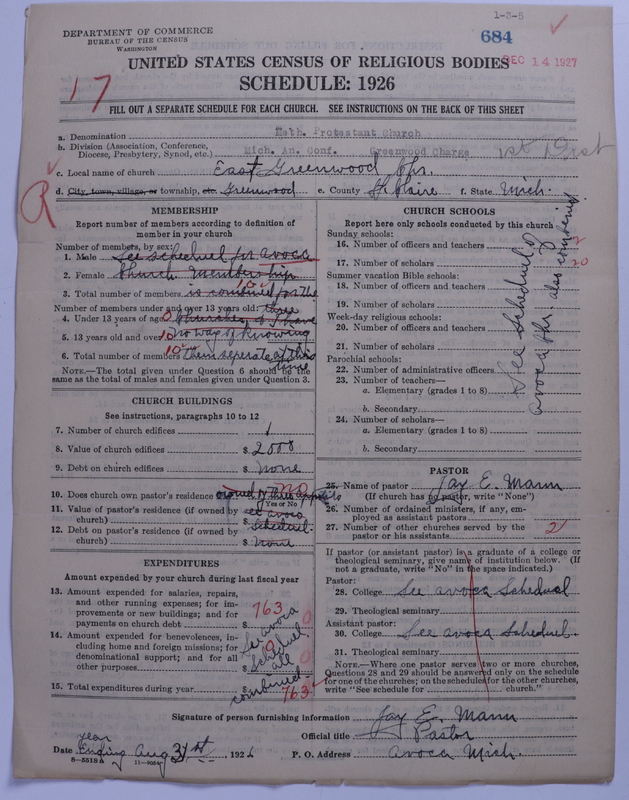 1-3-5
DEPARTMENT OF COMMERCE
BUREAU OF THE CENSUS
WASHINGTON
684
DEC 14 1927
UNITED STATES CENSUS OF RELIGIOUS BODIES
SCHEDULE: 1926
17
FILL OUT A SEPARATE SCHEDULE FOR EACH CHURCH. SEE INSTRUCTIONS ON THE BACK OF THIS SHEET
a. Denomination Meth. Protestant Church
b. Division (Association, Conference, Diocese, Presbytery, Synod, etc.) Mich. An. Conf. Greenwood Charge 1st Dist
c. Local name of church East Greenwood Chr.
d. City, town, village, or township, etc. Greenwood e. County St. Claire f. State Mich.
R
MEMBERSHIP
Report number of members according to definition of member in your church
Number of members, by sex:
1. Male See scheduel for avoca
2. Female Church. Membership
3. Total number of members is combined for the 10
Number of members under and over 13 years old: three
4. Under 13 years of age 0 Churches & I have
5. 13 years old and over 10 no way of knowing
6. Total number of members 10 them seperate at this time
NOTE.—The total given under Question 6 should be the same as the total of males and females given under Question 3.
CHURCH BUILDINGS
See instructions, paragraphs 10 to 12
7. Number of church edifices 1
8. Value of church edifices $ 2000
9. Debt on church edifices $ None
10. Does church own pastor's residence no
Yes or No
11. Value of pastor's residence (if owned by church) $ see avoca
12. Debt on pastor's residence (if owned by church) Scheduel. $ None
EXPENDITURES
Amount expended by your church during last fiscal year
13. Amount expended for salaries, repairs, and other running expenses; for improvements or new buildings; and for payments on church debt $ 763
14. Amount expended for benevolences, including home and foreign missions; for denominational support; and for all other purposes $ 0
See avoca Scheduel all combined
15. Total expenditures during year $ 763
CHURCH SCHOOLS
Report here only schools conducted by this church
Sunday schools:
16. Number of officers and teachers 2
17. Number of scholars 20
Summer vacation Bible schools:
18. Number of officers and teachers
19. Number of scholars
Week-day religious schools:
20. Number of officers and teachers
21. Number of scholars
Parochial schools:
22. Number of administrative officers
23. Number of teachers—
a. Elementary (grades 1 to 8)
b. Secondary
24. Number of scholars—
a. Elementary (grades 1 to 8)
b. Secondary
See Scheduel of
avoca Chr. also combined
PASTOR
25. Name of pastor Jay E. Mann
(If church has no pastor, write "None")
26. Number of ordained ministers, if any, employed as assistant pastors
27. Number of other churches served by the pastor or his assistants 2
If pastor (or assistant pastor) is a graduate of a college or theological seminary, give name of institution below. (If not a graduate, write "No" in the space indicated.)
Pastor:
28. College See avoca Schedual
29. Theological seminary
Assistant pastor:
30. College See avoca Scheduel.
31. Theological seminary
NOTE.—Where one pastor serves two or more churches, Questions 28 and 29 should be answered only on the schedule for one of the churches; on the schedules for the other churches, write "See schedule for church."
Signature of person furnishing information Jay E. Mann
Official title Pastor
Date year Ending Aug 31st, 1926
P. O. Address avoca Mich.
8-5518a